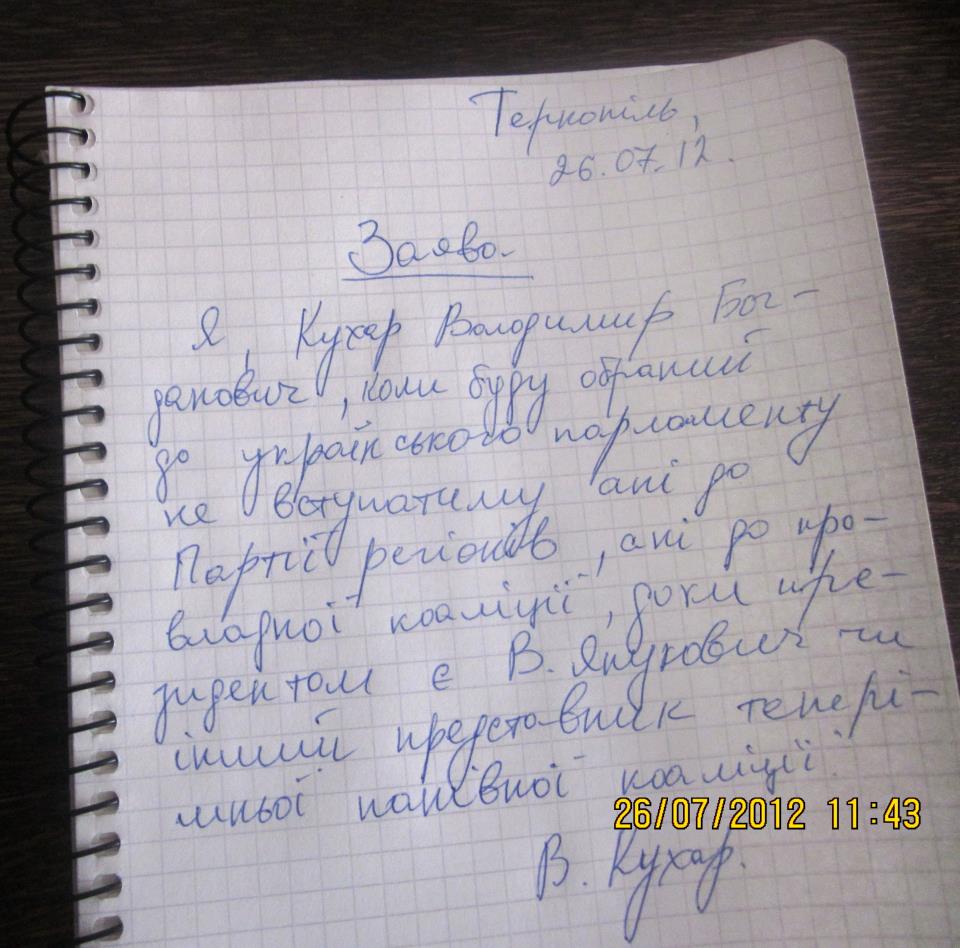 Тернопіль,
26.07.12.
Заява.
Я, Кухар Володимир Бог-
данович, коли буду обраний
до українського парламенту
не вступатиму ані до
Партії регіонів, ані до про-
владної коаліції, доки пре-
зидентом є В. Янукович чи
інший представник тепері-
шньої панівної коаліції.
26/07/2012 11:43
В. Кухар.